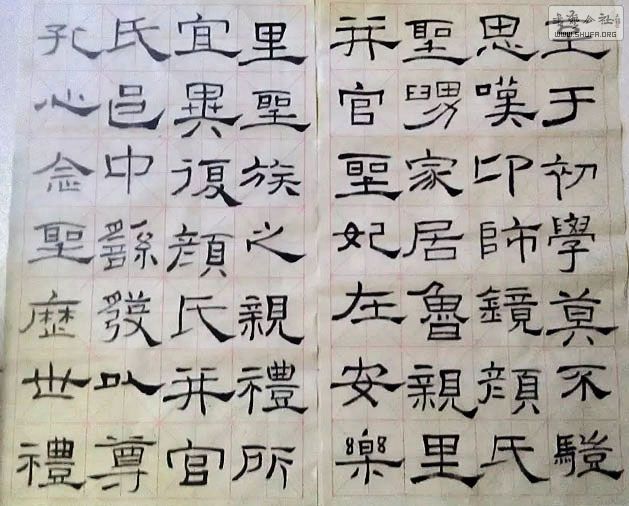 至于初學莫不驡
思嘆卬師鏡顏氏
聖舅家居魯親里
并官聖妃在安樂
里聖族之親禮所
宜異復顏氏并官
氏邑中繇發以尊
孔心念聖歷世禮
書藝公社
WWW.SHUFA.ORG